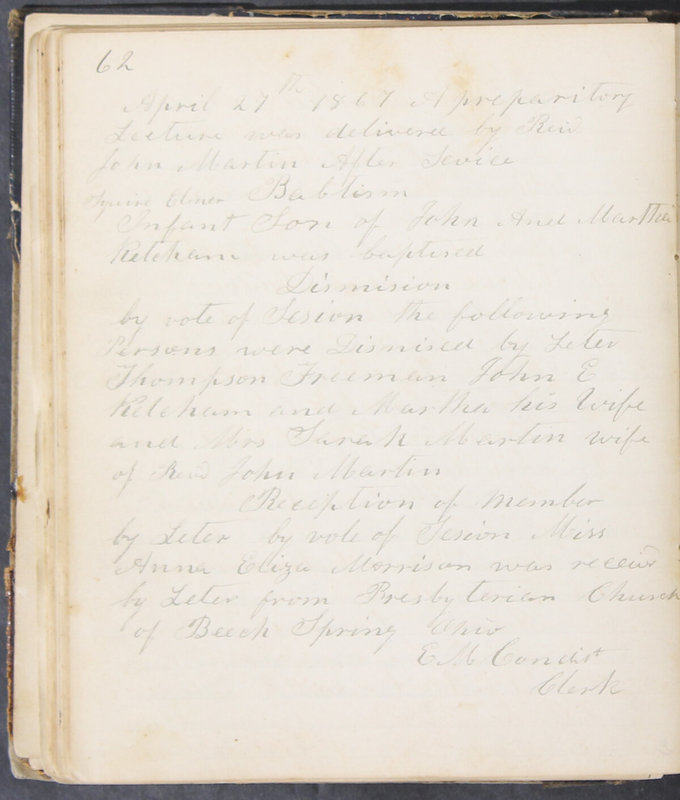 62
April 27th 1867 A preparitory
Lecture was delivered by Revd
John Martin After Sevice
Squire Elmer Babtism
Infant Son of John And Martha
Ketcham was baptised
Dismision
by vote of Sesion the following
Persons were Dismised by Leter
Thompson Freeman John E
Ketcham and Martha his Wife
and Mrs Sarah Martin wife
of Revd John Martin
Reception of member
by Leter by vote of Sesion Miss
Anna Eliza Morrison was receivd
by Leter from Presbyterian Church
of Beech Spring Ohio
E M Condit
Clerk